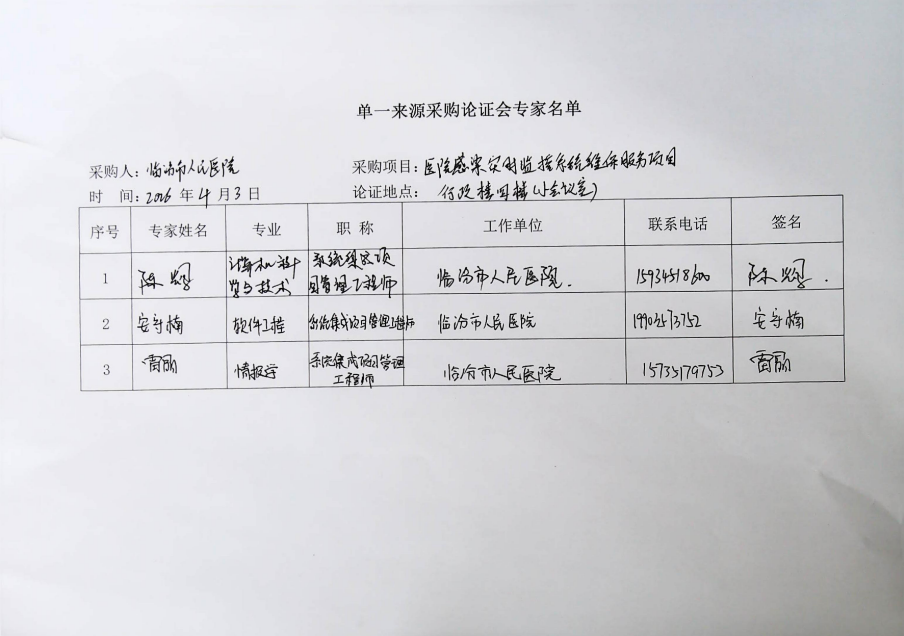 单一来源采购论证会专家名单
采购人：临汾市人民医院 采购项目：医院感染实时监控系统维保服务项目
时 间：2026 年 4 月 3 日 论证地点： 行政楼四楼(小会议室)
序号 专家姓名 专业 职 称 工作单位 联系电话 签名
1 陈 计算机科学与技术 系统集成项目管理工程师 临汾市人民医院. 15934518600 陈
2 安守楠 软件工程 系统集成项目管理工程师 临汾市人民医院 19903573752 安守楠
3 情报学 系统集成项目管理工程师 临汾市人民医院 15735179753